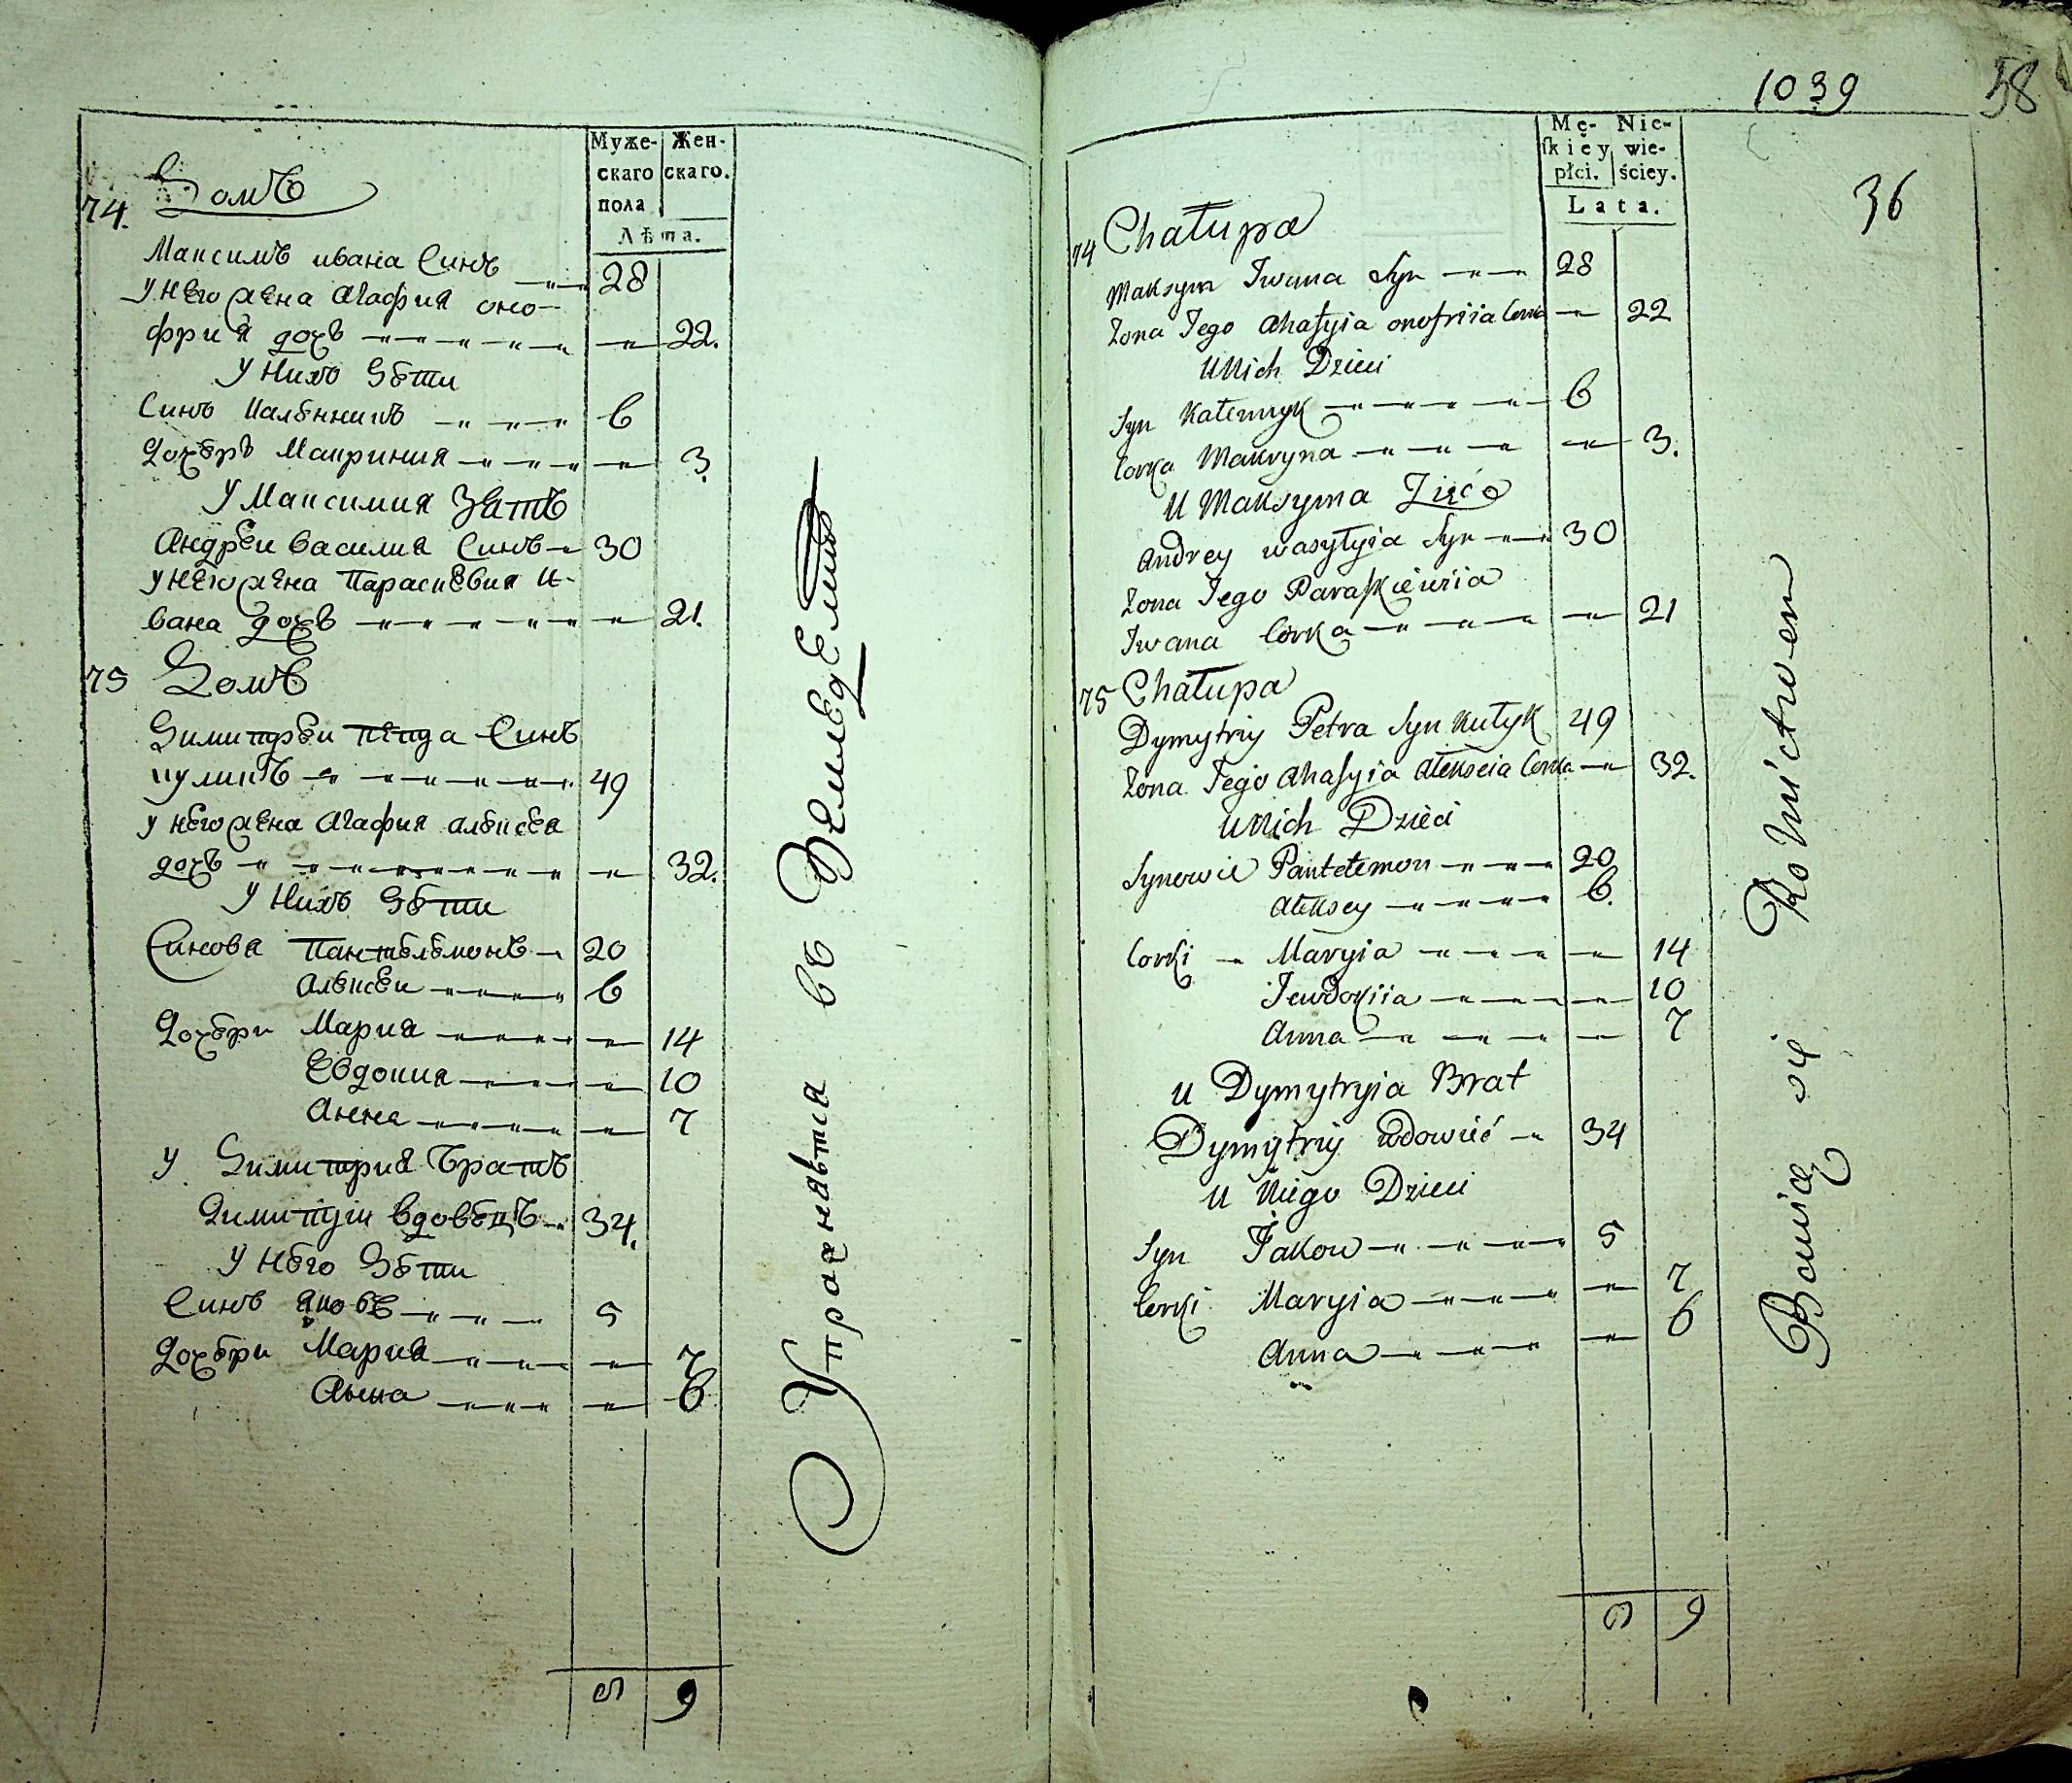 Муже-
скаго
пола
Жен-
скаго.
Лѣта.
74. Домъ
Максимъ ивана Синъ 28
у него жена Агафия оно-
фрия дочь 22.
У нихъ Дѣти
Синъ Калѣнникъ 6
Дочѣрь Макриния 3.
У Максимия Зять
Андреи василия Синъ 30
у него жена Параскевия и-
вана дочь 21.
75 Домъ
Димитреи Петра Синъ
куликъ 49
у него жена Агафия алексея
дочь 32.
У нихъ Дѣти
Синова Пантелемонъ 20
Алексеи 6
Дочѣри Мария 14
Евдокия 10
Анна 7
У Димитрия Братъ
Димитрiи вдовѣцъ 34.
У него Дѣти
Синъ Яковъ 5
Дочѣри Мария 7
Анна 6
Упражнявтся въ Земледелию
9
1039
58
36
Mę-
ſkiey
płci.
Nie-
wie-
ściey.
Lata.
74 Chałupa
Maksym Iwana Syn 28
Żona Jego Ahafyia onofriia Corka 22
U Nich Dzieci
Syn Kałennyk 6
Corka Makryna 3.
U Maksyma Zięć
Andrey wasyłyia Syn 30
Żona Jego Paraskiewia
Iwana Corka 21
75 Chałupa
Dymytriy Petra Syn Kułyk 49
Żona Jego Ahafyia Ałekseia Corka 32.
U Nich Dzieci
Synowie Pantełemon 20
Ałeksey 6.
Corki Maryia 14
Jewdokiia 10
Anna 7
U Dymytryia Brat
Dymytriy wdowieć 34
U Niego Dzieci
Syn Jakow 5
Corki Maryia 7
Anna 6
Bawią się Rolnictwem
9